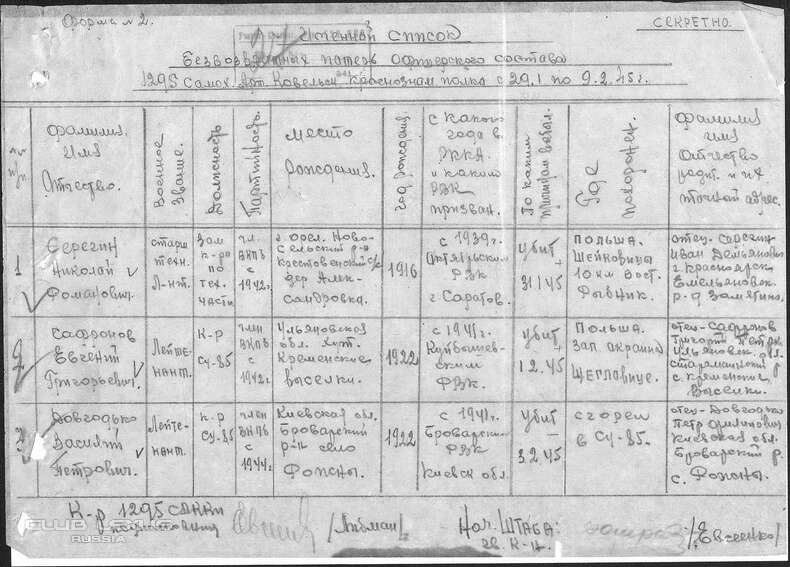 Форма №2.
СЕКРЕТНО.
Именной список
безвозвратных потерь офицерского состава
1295 Самох. Арт. Ковельск. Краснознам полка с 29.1 по 9.2.45г.
Фамилия. Имя Отчество.
Военное звание.
Должность
Партийность.
Место рождения.
Год рождения.
с какого года в РККА и каким РВК призван.
По каким причинам выбыл.
Где похоронен.
Фамилия имя отчество родит. и их точный адрес.
1
Серегин Николай Романович.
старш техн. л-нт.
Зам к-ра по тех. части
чл. ВКПб с 1942г.
1916
с 1939г. Октябрьским РВК г. Саратов.
убит 31.1.45
Польша. Шейковицы 10 км Вост. Рыбник.
отец-Серегин
2
Сафронов Евгений Григорьевич.
Лейтенант.
К-р Су-85
член ВКПб с 1942г.
Ульяновская обл. хут. Кременские выселки.
1922
с 1941г. Куйбышевским РВК.
убит 1.2.45
Польша. Зап. окраина Щегловице.
отец-Сафронов Григорий
Ульяновск. обл.
с. Кременские Выселки.
3
Довгодько Василий Петрович.
Лейтенант.
к-р Су-85
член ВКПб с 1944г.
Киевская обл. Броварский р-н село Рожны.
1922
с 1941г. Броварским РВК Киевск обл.
убит 3.2.45
сгорел в Су-85.
отец-Довгодько Петр
Киевская обл. Броварский р. с. Рожны.
К-р 1295
/Либман/
Нач. ШТАБА
гв. К-н.
/Евченко/
CLUB LEXUS
RUSSIA